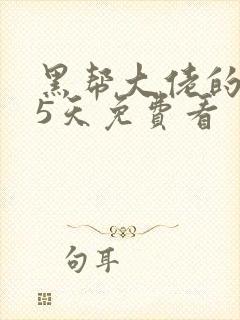 黑帮大佬的
5天免費看
句耳